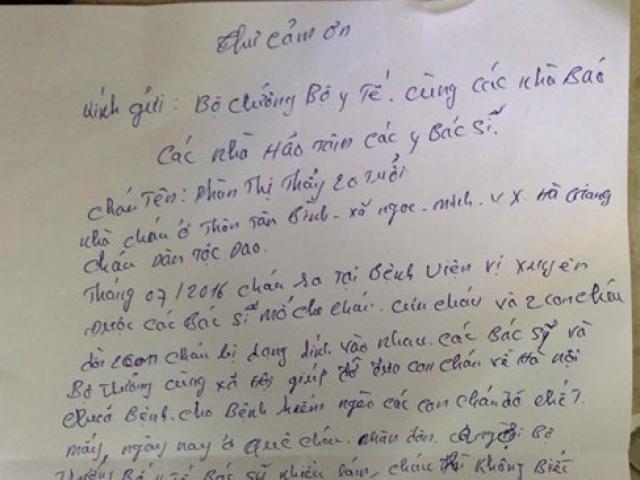 Thư cảm ơn
Kính gửi: Bộ trưởng Bộ y Tế. cùng các nhà Báo
Các nhà Hảo tâm các y Bác Sĩ.
cháu Tên: Phàn Thị Thẩy 20 Tuổi
nhà cháu ở Thôn Tân Bình - xã ngọc - minh - V X. Hà Giang
cháu Dân Tộc Dao.
Tháng 07/2016 cháu ra Tại Bệnh viện vị xuyên
Được các Bác sĩ mổ cho cháu. cứu cháu và 2 con cháu
2 con cháu bị dạng dính vào nhau. các Bác sỹ và
Bộ Trưởng cùng xã giúp đỡ đưa con cháu về Hà nội
chữa Bệnh. cho Bệnh hiểm ngèo các con cháu đã chết.
mấy, ngày nay ở quê cháu. nhân dân. Bộ
Bác sỹ nhiều lắm, cháu Không Biết